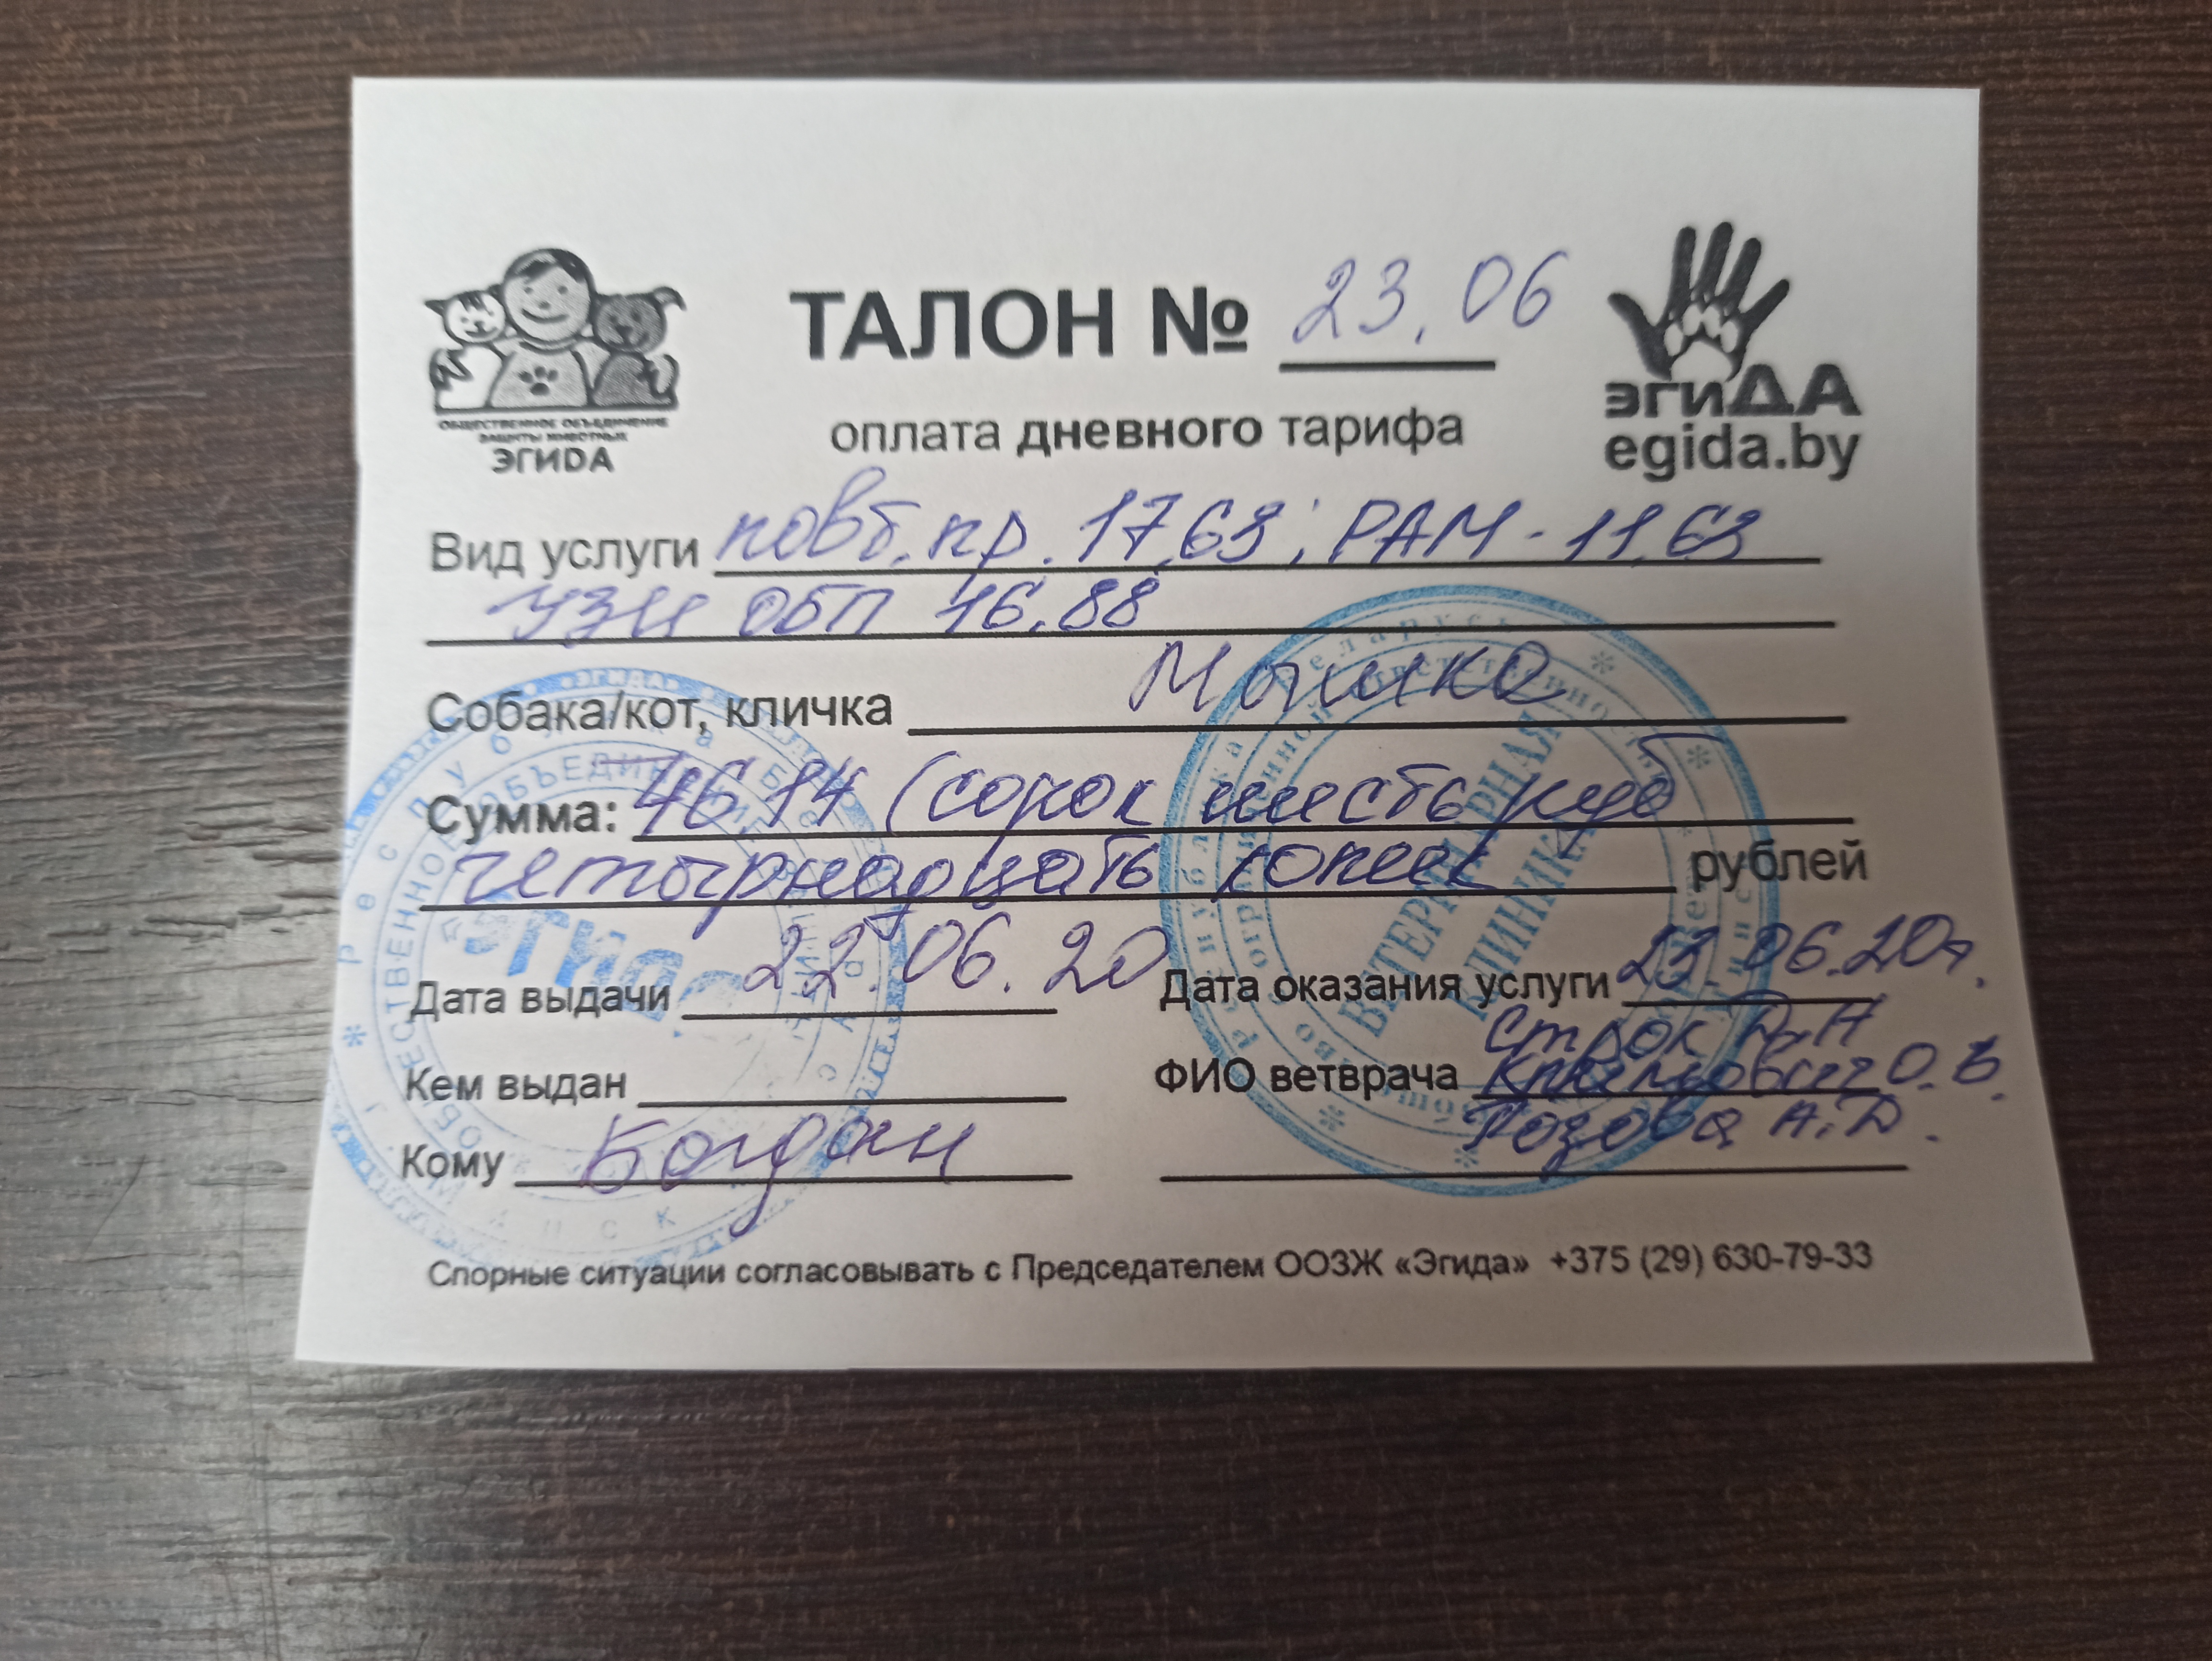 ТАЛОН № 23.06
оплата дневного тарифа
ОБЩЕСТВЕННОЕ ОБЪЕДИНЕНИЕ
ЗАЩИТЫ ЖИВОТНЫХ
ЭГИДА
эгиДА
egida.by
Вид услуги повт. пр. 17,63; РАМ - 11,63
УЗИ ОБП 16,88
Собака/кот, кличка Мышка
Сумма: 46,14 (сорок шесть руб
четырнадцать копеек рублей
Дата выдачи 22.06.20 Дата оказания услуги 23.06.20г.
Кем выдан ФИО ветврача Строк Д.А
О.В.
Розова А.Д.
Кому Богдан
Спорные ситуации согласовывать с Председателем ООЗЖ «Эгида» +375 (29) 630-79-33
ВЕТЕРИНАРНАЯ
КЛИНИКА
«Эгида»